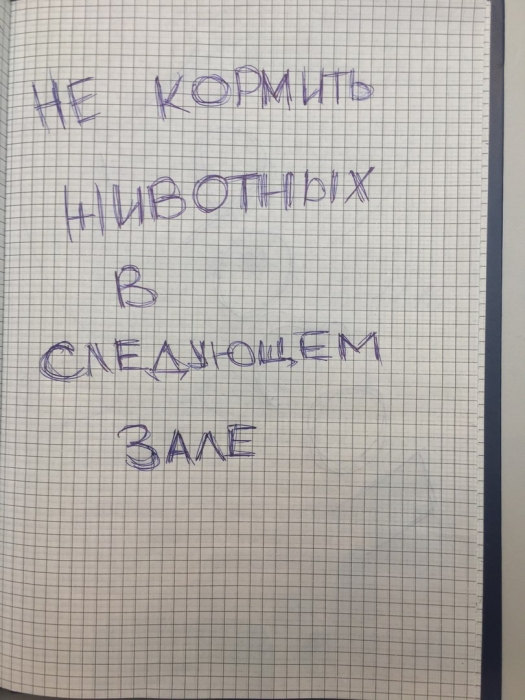 НЕ КОРМИТЬ
ЖИВОТНЫХ
В
СЛЕДУЮЩЕМ
ЗАЛЕ